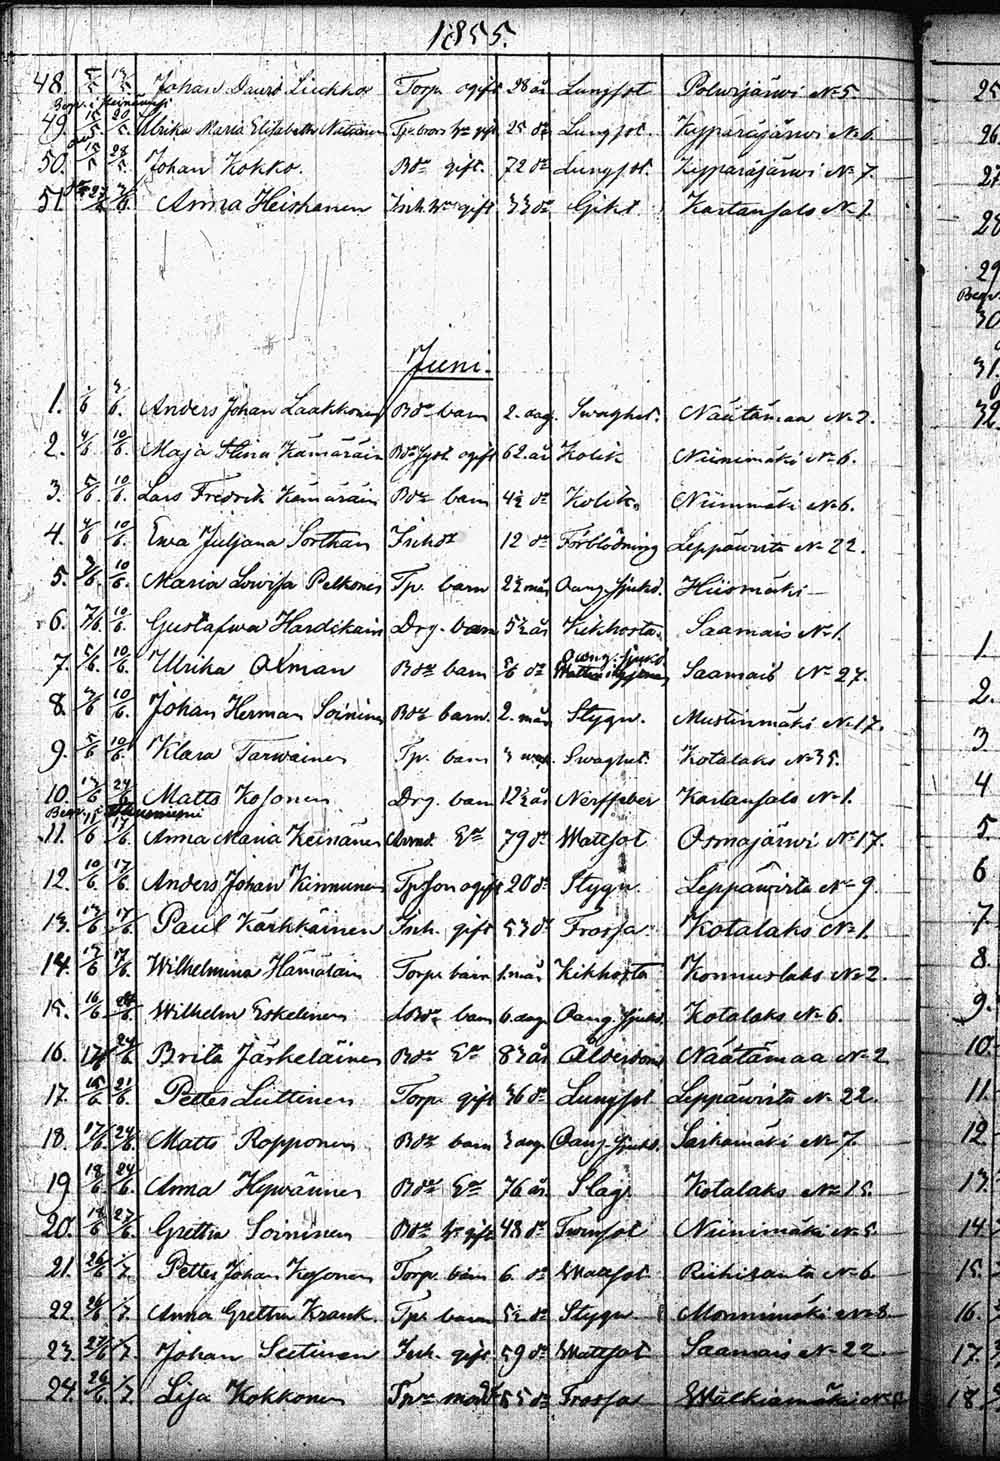 1855.
48. 5/5 13/5 Johan David Liukko Torp. ogift 28 år Lungsot Polvijärvi No 5.
Begr. i
49. 15/5 20/5 Ulrika Maria Elisabeth gift 25 do Lungsot. Kypäräjärvi No 6.
50. 15/5 28/5 Johan Kokko. Bde gift. 72 do Lungsot. Kypäräjärvi No 7.
51. 27/5 3/6. Anna Heiskanen Insh. gift 33 do Gikt Kartansalo No 1.
Juni.
1. 1/6 3/6. Anders Johan Laakkonen Bde barn 2. dag. Swaghet. Näätämaa No 2.
2. 4/6 10/6. Maja Stina Kämäräin ogift 62. år Kolik Niinimäki No 6.
3. 5/6. 10/6. Lars Fredrik Kämäräin Bde barn 4½ do Kolik. Niinimäki No 6.
4. 4/6 10/6. Ewa Juljana Sorthan 12 do Förblödning Leppäwirta No 22.
5. 10/6. Maria Lowisa Pelkonen Tp. barn 2½ mån Oang. sjukd. Hiismäki
6. 7/6. 10/6. Gustafwa Hardikain Drg. barn 5½ år Kikhosta. Saamais No 1.
7. 5/6. 10/6. Ulrika Oxman Bde barn 5/6 do Oang. sjukd. Saamais No 27.
8. 10/6. Johan Herman Soininen Bde barn. 2. mån Stygn. Mustinmäki No 17.
9. 5/6 10/6. Klara Tarwainen Tp. barn 3 Swaghet. Kotalaks No 35.
10. 13/6 24/6 Matts Kosonen Drg. barn 12½ år Nerffeber Kartansalo No 1.
Begr. i
11. 11/6 17/6 Anna Maria Keinänen Ea 79 do Wattsot Osmajärwi No 17.
12. 10/6. 17/6. Anders Johan Kinnunen Tp. son ogift 20 do Stygn Leppäwirta No 9.
13. 13/6 17/6. Paul Kärkkäinen Insh. gift 53 do Frossa Kotalaks No 1.
14. 13/6 17/6. Wilhelmina Hämäläin Torp. barn 1. mån Kikhosta Konnuslaks No 2.
15. 16/6 24/6. Wilhelm Eskelinen barn 6. dag Oang. sjukd. Kotalaks No 6.
16. 24/6. Brita Jäskeläinen Bde Ea 83 år Ålderdom Näätämaa No 2
17. 15/6 21/6. Petter Liittinen Torp. gift 36 do Lungsot Leppäwirta No 22.
18. 17/6. 24/6. Matts Ropponen Bde barn 3 dag Oang. sjukd. Saikamäki No 7.
19 18/6 24/6. Anna Hywärinen Bde Ea 76 år Slag. Kotalaks No 15.
20. 18/6 27/6. Gretha Soininen Bde gift 48 do Twinsot Niinimäki No 5.
21. 26/6 1/7. Petter Johan Kosonen Torp. barn 6. do Wattsot Riihiranta No 6.
22. 26/6. 1/7. Anna Gretha Krank. Tp. barn 5½ do Stygn Monnimäki No 8.
23. 27/6 1/7. Johan Seitinen Insh. gift 59 do Wattsot Saamais No 22.
24. 26/6. 1/7. Lisa Kokkonen 55 do Frossa Wälkiämäki
25
26.
27
28
29
Begr.
30
31.
32.
1.
2.
3
4
5.
6
7
8.
9.
10.
11.
12.
13.
14.
15.
16.
17.
18.